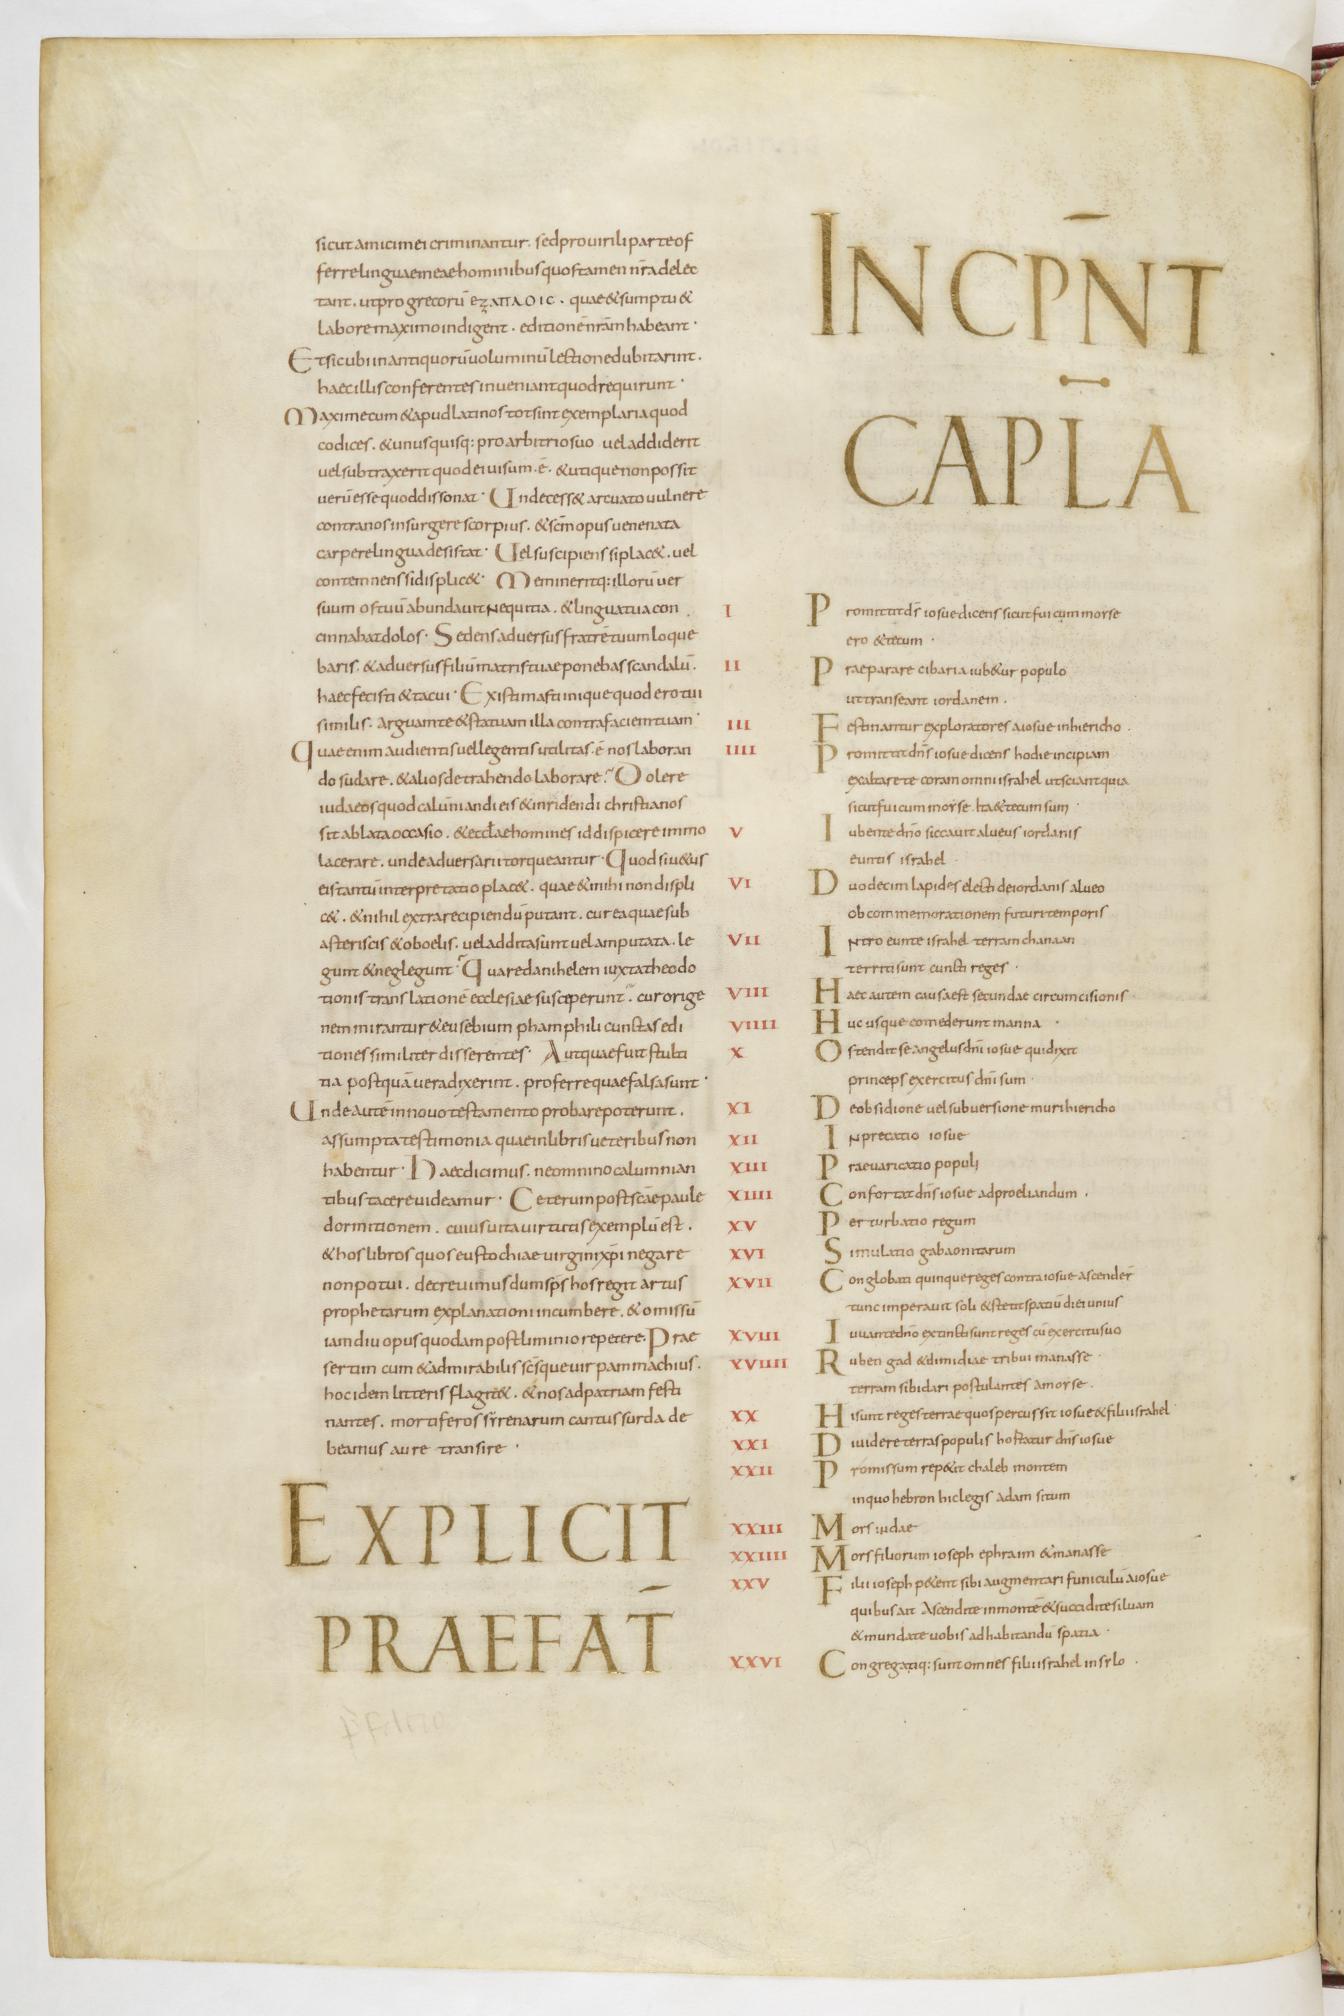 sicut amici mei criminantur. sed pro virili parte of
ferre linguae meae hominibus quos tamen nr̄a delec
tant. ut pro grecorū ΕΖΑΠΛΟΙC. quae & sumptu &
labore maximo indigent. editionē nr̄am habeant.
Et sicubi in antiquorū uoluminū lectione dubitarint.
haec illis conferentes inueniant quod requirunt.
Maxime cum & apud latinos tot sint exemplaria quod
codices. & unusquisq: pro arbitrio suo uel addiderit
uel subtraxerit quod ei uisum.ē. & utique non possit
uerū esse quod dissonat. Unde cess& arcuato uulnere
contra nos insurgere scorpius. & scm̄ opus uenenata
carpere lingua desistat. Uel suscipiens si plac&. uel
contemnens si displic&. Memineritq: illorū uer
suum os tuū abundauit nequitia. & lingua tua con
cinnabat dolos. Sedens aduersus fratrē tuum loque
baris. & aduersus filiū matris tuae ponebas scandalū.
haec fecisti & tacui. Existimasti inique quod ero tui
similis. arguam te & statuam illa contra faciem tuam.
Quae enim audientis uel legentis utilitas.ē nos laboran
do sudare. & alios detrahendo laborare. Dolere
iudaeos quod calūniandi eis & inridendi christianos
sit ablata occasio. & eccl̄ae homines id dispicere immo
lacerare. unde aduersarii torqueantur. Quod si u&us
eis tantū interpretatio plac&. quae & mihi non displi
c&. & nihil extra recipiendū putant. cur ea quae sub
asteriscis & oboelis. uel addita sunt uel amputata. le
gunt & neglegunt. Quare danihelem iuxta theodo
tionis translationē ecclesiae susceperunt. cur orige
nem mirantur & eusebium phamphili cunctas edi
tiones similiter disserentes. Aut quae fuit stulti
tia postquā uera dixerint. proferre quae falsa sunt.
Unde autē in nouo testamento probare poterunt.
assumpta testimonia quae in libris ueteribus non
habentur. Haec dicimus. ne omnino calumnian
tibus tacere uideamur. Ceterum post scāe paule
dormitionem. cuius uita uirtutis exemplū est.
& hos libros quos eustochiae uirgini xp̄i negare
non potui. decreuimus dum sp̄s hos regit artus
prophetarum explanationi incumbere. & omissū
iam diu opus quodam postliminio repetere. Prae
sertim cum & admirabilis scs̄que uir pammachius.
hoc idem litteris flagit&. & nos ad patriam festi
nantes. mortiferos syrenarum cantus surda de
beamus aure transire.
EXPLICIT
PRAEFAT̄
INCP̄NT
CAPL̄A
I Promittit dn̄s iosue dicens sicut fui cum morse
ero & tecum.
II Praeparare cibaria iub&ur populo
ut transeant iordanem.
III Festinantur exploratores a iosue in hiericho.
IIII Promittit dn̄s iosue dicens hodie incipiam
exaltare te coram omni israhel ut sciant quia
sicut fui cum morse. ita & tecum sum.
V Iubente dn̄o siccauit alueus iordanis
euntis israhel.
VI Duodecim lapides electi de iordanis alueo
ob commemorationem futuri temporis
VII Introeunte israhel terram chanaan
territi sunt cuncti reges.
VIII Haec autem causa est secundae circumcisionis.
VIIII Huc usque comederunt manna.
X Ostendit se angelus dn̄i iosue qui dixit
princeps exercitus dn̄i sum.
XI De obsidione uel subuersione muri hiericho
XII Inprecatio iosue
XIII Praeuaricatio populi
XIIII Confortat dn̄s iosue ad proeliandum.
XV Perturbatio regum
XVI Simulatio gabaonitarum
XVII Conglobati quinque reges contra iosue ascender̄
tunc imperauit soli & stetit spatiū diei unius
XVIII Iuuante dn̄o extincti sunt reges cū exercitu suo
XVIIII Ruben gad & dimidiae tribui manasse.
terram sibi dari postulantes a morse.
XX Hi sunt reges terrae quos percussit iosue & filii israhel
XXI Diuidere terras populis hostatur dn̄s iosue
XXII Promissum rep&it chaleb montem
in quo hebron hic legis adam situm
XXIII Mors iudae
XXIIII Mors filiorum ioseph ephraim & manasse
XXV Filii ioseph p&ent sibi augmentari funiculū a iosue
quibus ait Ascendite in montē & succidite siluam
& mundate uobis ad habitandū spatia.
XXVI Congregatiq: sunt omnes filii israhel in silo.